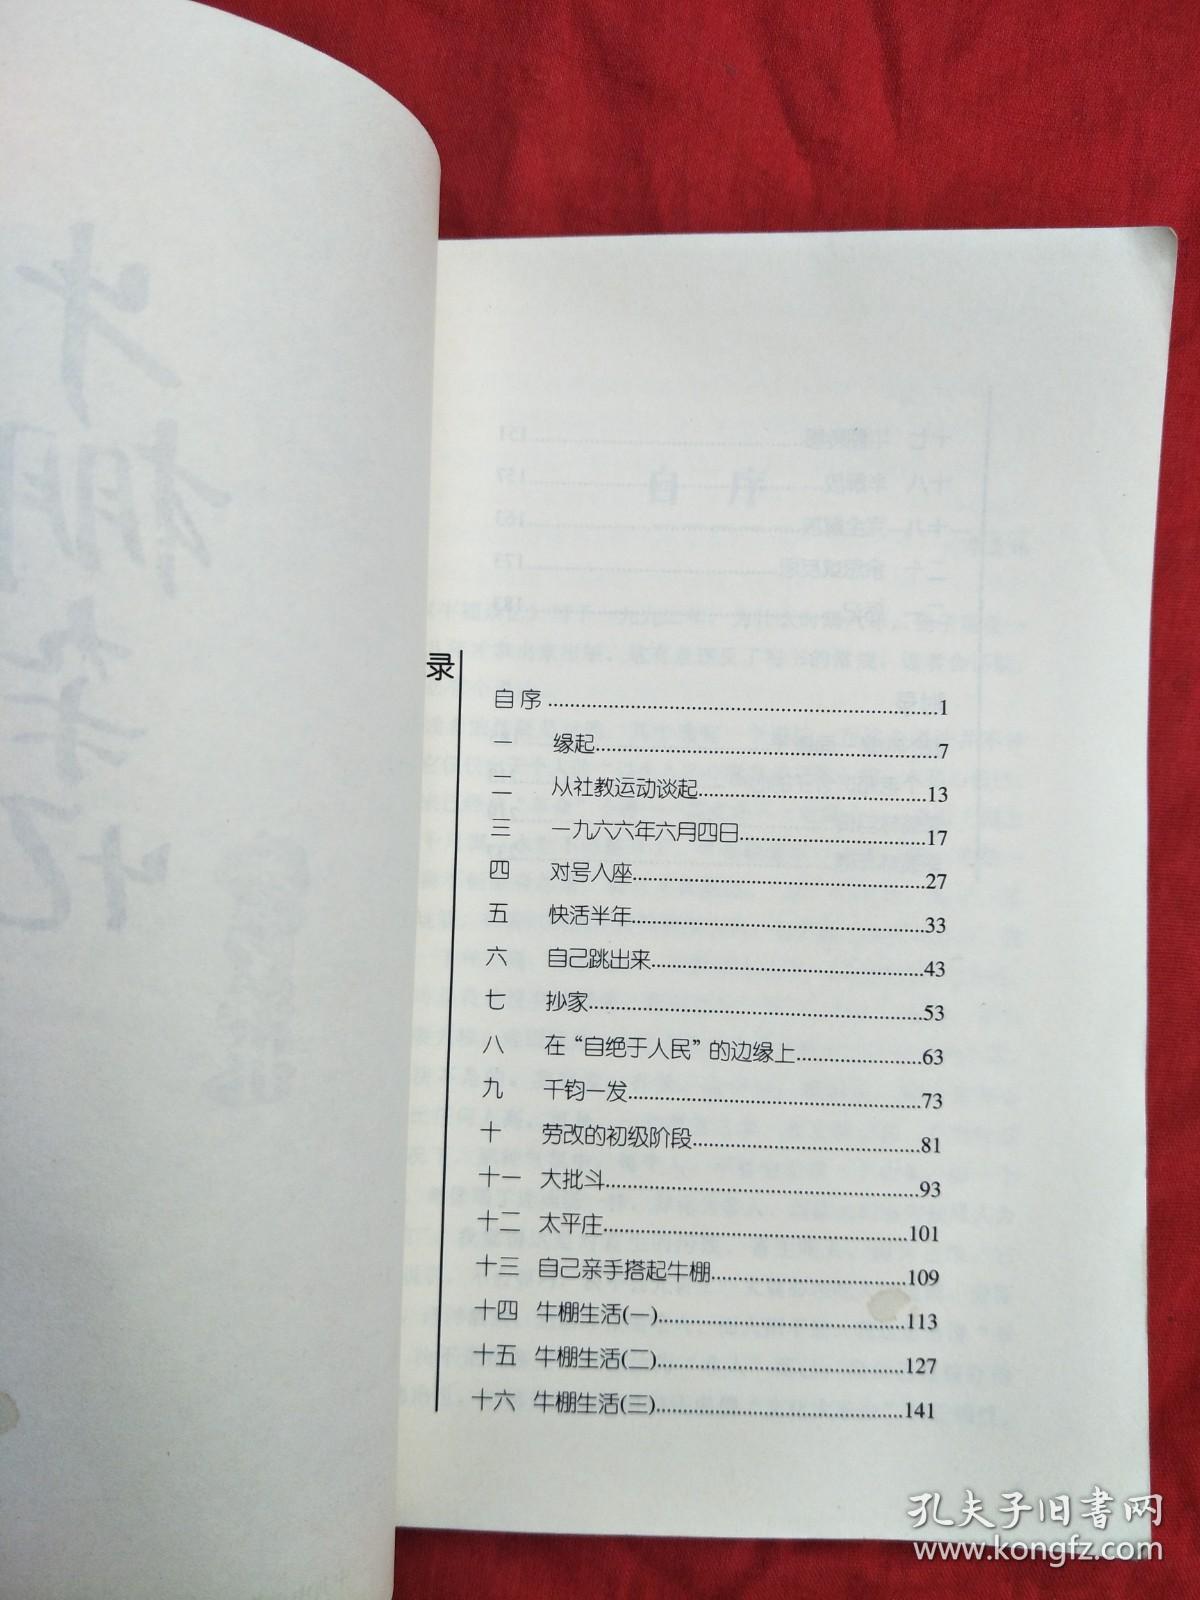 录
自序 1
一 缘起 7
二 从社教运动谈起 13
三 一九六六年六月四日 17
四 对号入座 27
五 快活半年 33
六 自己跳出来 43
七 抄家 53
八 在“自绝于人民”的边缘上 63
九 千钧一发 73
十 劳改的初级阶段 81
十一 大批斗 93
十二 太平庄 101
十三 自己亲手搭起牛棚 109
十四 牛棚生活(一) 113
十五 牛棚生活(二) 127
十六 牛棚生活(三) 141
孔夫子旧书网
www.kongfz.com